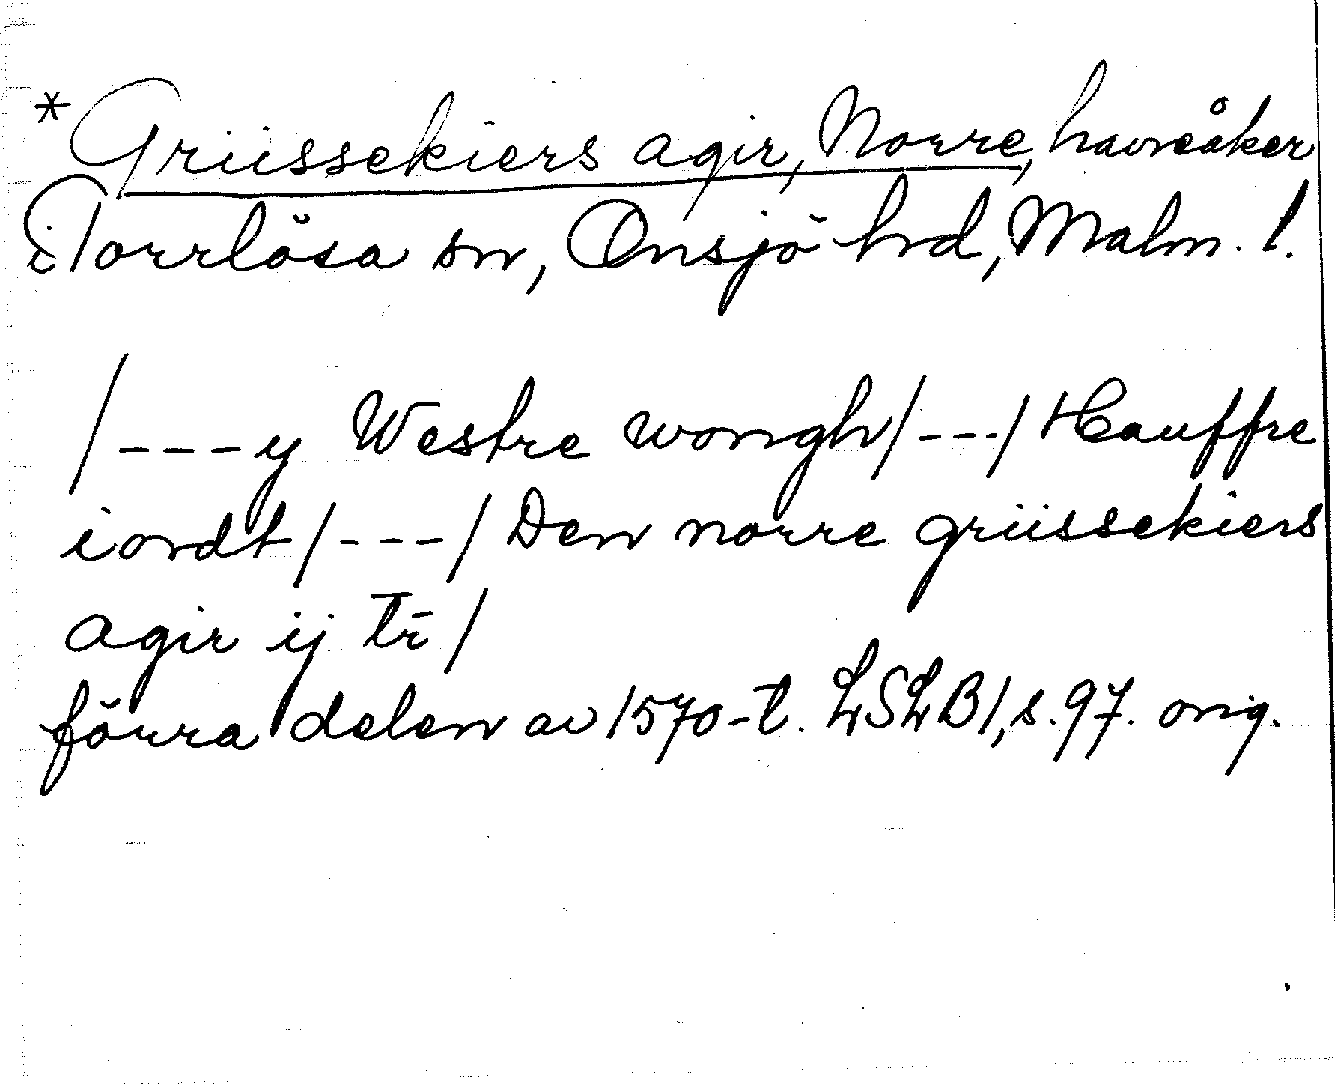 * Griissekiers agir, Norre, havreåker
i Torrlösa sn, Onsjö hrd, Malm. l.
/---y Westre wongh/---/ Hauffre
iordt/---/ Den norre griissekiers
agir ij tr̄ /
förra delen av 1570-t. LSLB1, s. 97. orig.